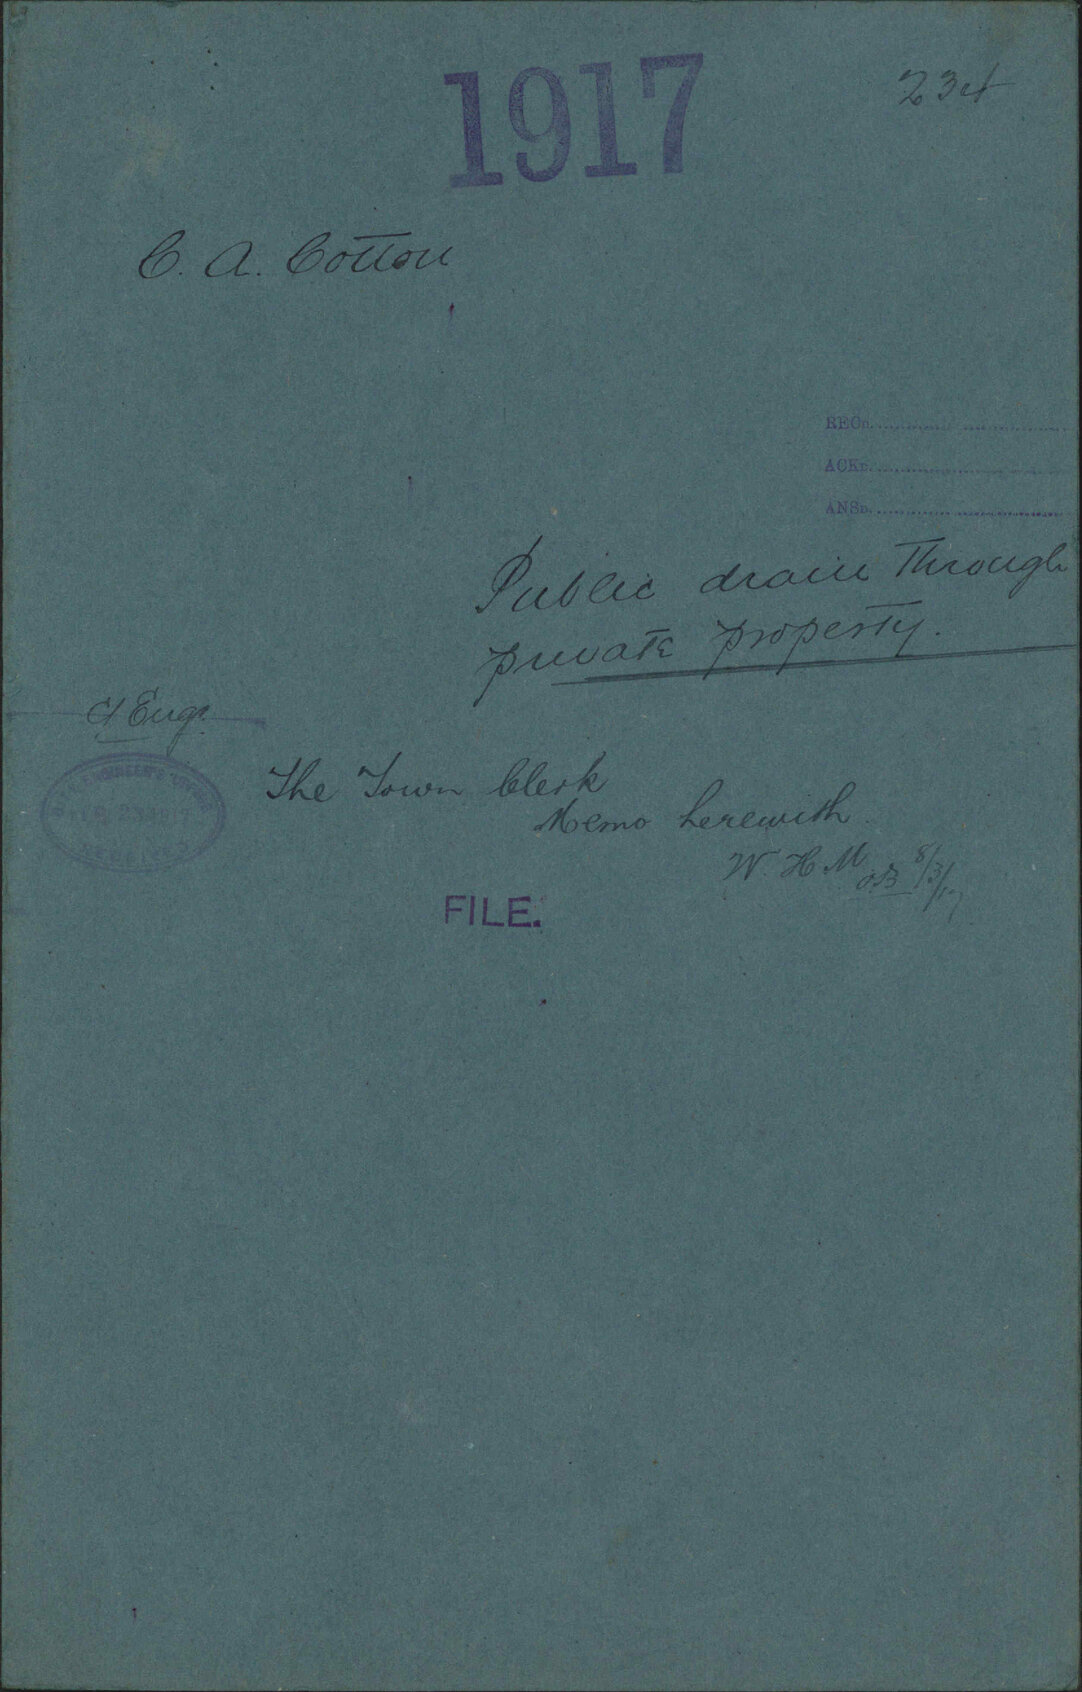 1917
C. A. Cotton
RECD.
ACKD.
ANSD.
Public drain through
private property.
Cy Engr.
ENGINEER'S
FEB 23 1917
RECEIVED
The Town Clerk
Memo herewith
W. H. M.
8/3/17
FILE.